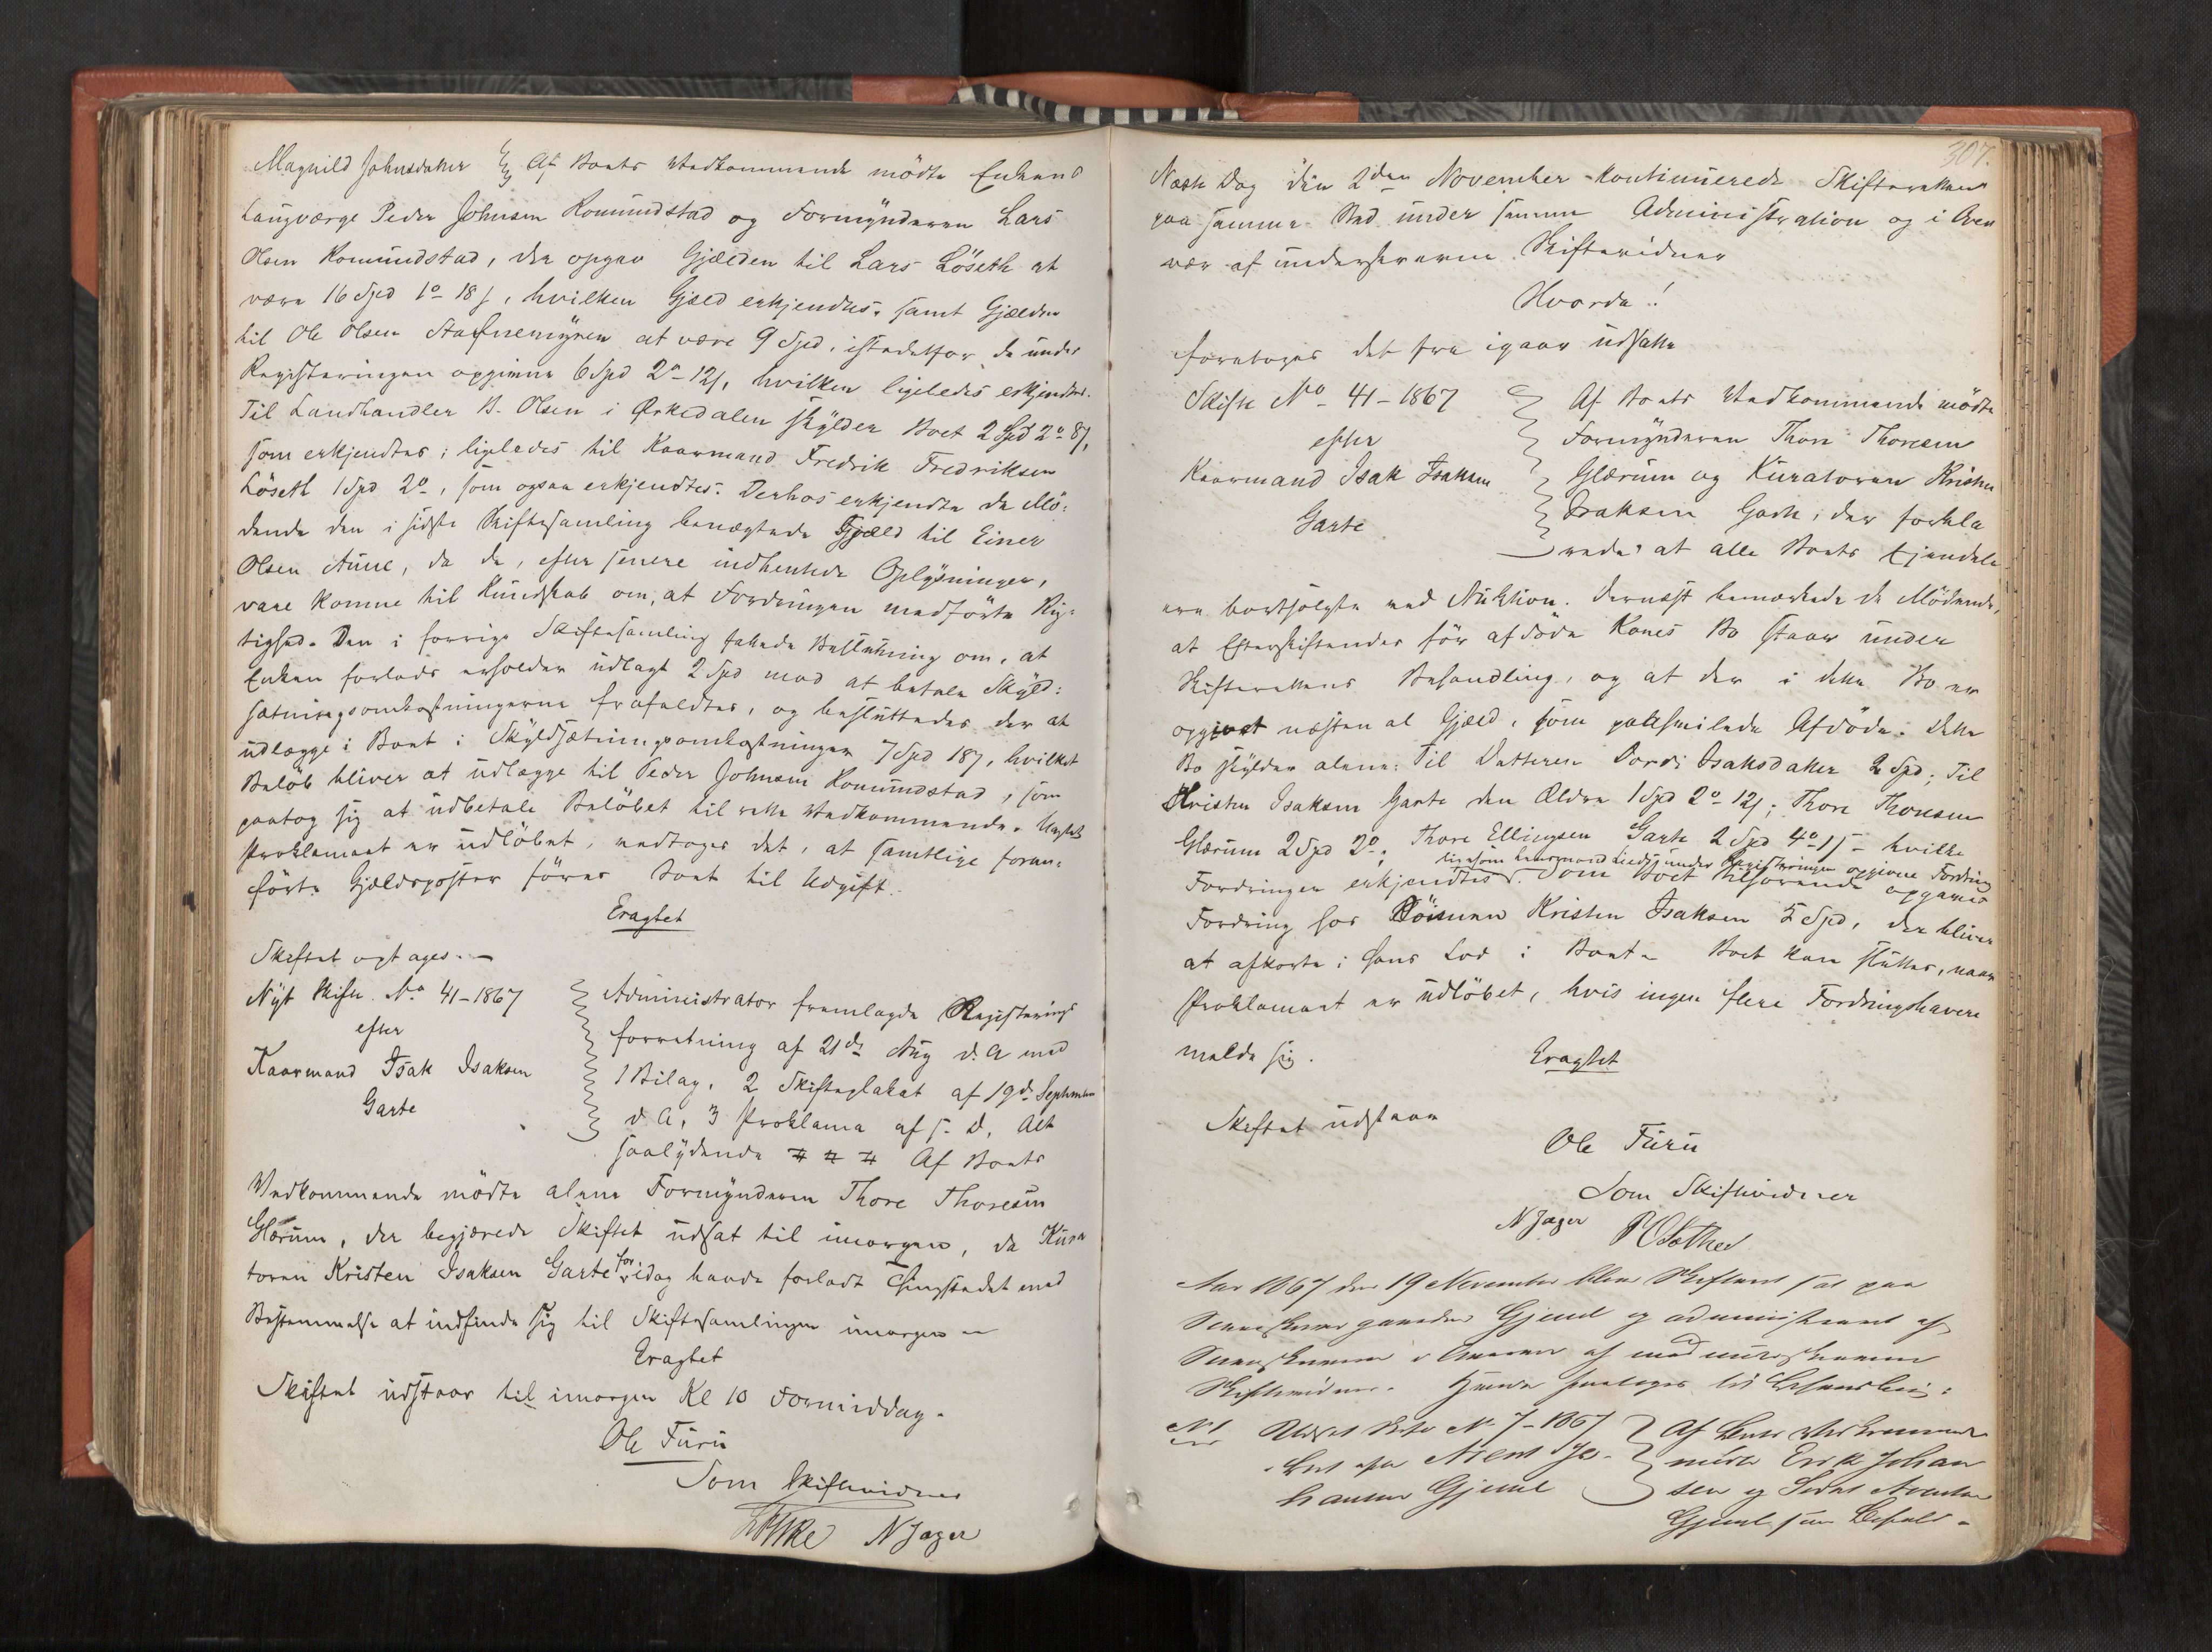 Magnild Johnsdatter Af Boets Vedkommende mödte Enkens
Laugværge Peder Johnsen Komundstad og Formynderen Lars
Olsen Komundstad, der opgav Gjælden til Lars Löseth at
være 16 Spd 1o 18 s, hvilken Gjæld erkjendtes, samt Gjælden
til Ole Olsen Stafnemyren at være 9 Spd, istedetfor de under
Registeringen opgivne 6 Spd 2o 12 s, hvilken ligeledes erkjendtes.
Til Landhandler B. Olsen i Ørkedalen skylder Boet 2 Spd 2o 8 s,
som erkjendtes; ligeledes til Kaarmand Fredrik Fredriksen
Löseth 1 Spd 2o, som ogsaa erkjendtes. Derhos erkjendte de Mö-
dende den i sidste Skiftesamling benægtede Gjæld til Einer
Olsen Aune, da de, efter senere indhentede Oplysninger,
vare komne til Kundskab om, at Fordringen medförte Rig-
tighed. Den i forrige Skiftesamling fattede Beslutning om, at
Enken forlods erholder udlagt 2 Spd mod at betale Skyld-
sætningsomkostningerne frafaldtes, og besluttedes der at
udlægge i Boet i Skyldsætningsomkostninger 7 Spd 18 s, hvilket
Belöb bliver at udlægge til Peder Johnsen Komundstad, som
paatog sig at udbetale Belöbet til rette Vedkommende. Uagtet
Proklamaet er udlöbet, vedtoges det, at samtlige foran-
förte Gjældsposter föres Boet til Udgift.
Eragtet
Skiftet optages.
Nyt Skifte No 41-1867
efter
Kaarmand Isak Isaksen
Garte
Administrator fremlagde Registerings
forretning af 21de Aug d. A med
1 Bilag, 2 Skifteplakat af 19de September
d. A, 3 Proklama af s. D, Alt
saalydende # # # Af Boets
Vedkommende mödte alene Formynderen Thore Thoresen
Glærum, der begjærede Skiftet udsat til imorgen, da Kura
toren Kristen Isaksen Garte for idag havde forladt Thingstedet med
Bestemmelse at indfinde sig til Skiftesamlingen imorgen
Eragtet
Skiftet udstaar til imorgen Kl 10 Formiddag.
Ole Furu
Som Skiftevidner
N Jager
307.
Næste Dag den 2den November kontinuerede Skifteretten
paa samme Sted under samme Administration og i Over
vær af underskrevne Skiftevidner
Hvorda!
foretoges det fra igaar udsatte
Skifte No 41-1867
efter
Kaarmand Isak Isaksen
Garte
Af Boets Vedkommende mödte
Formynderen Thore Thoresen
Glærum og Kuratoren Kristen
Isaksen Garte, der forkla
rede, at alle Boets Ejendele
ere bortsolgte ved Auktion. Dernæst bemærkede de Mödende,
at Efterskiftendes för afdöde Kones Bo staar under
Skifterettens Behandling, og at der i dette Bo er
opgivet næsten al Gjæld, som paahvilede Afdöde. Dette
Bo skylder alene: Til Datteren Dordi Isaksdatter 2 Spd; Til
Kristen Isaksen Garte den Ældre 1 Spd 2o 12 s; Thore Thoresen
Glærum 2 Spd 2o; Thore Ellingsen Garte 2 Spd 4o 1 s hvilke
ligesom Lensmand under Registeringen opgivne Fordring
Fordringer erkjendtes. Som Boet tilhörende opgaves
Fordring hos Sönnen Kristen Isaksen 5 Spd, der bliver
at afkorte i hans Lod i Boet. Boet kan sluttes, naar
Proklamaet er udlöbet, hvis ingen flere Fordringshavere
melde sig.
Eragtet
Skiftet udstaar
Ole Furu
Som Skiftevidner
N Jager
Aar 1867 den 19 November blev Skifteret sat paa
Sorenskrivergaarden Gjeml og administreret af
Sorenskriveren i Overvær af medunderskrevne
Skiftevidner. Hvorda foretoges til Behandling:
No 1 Skifte No 7-1867
Boet efter Arent Jo-
hansen Gjeml
Af Boets Vedkommende
mödte Erik Johan
sen og
Gjeml